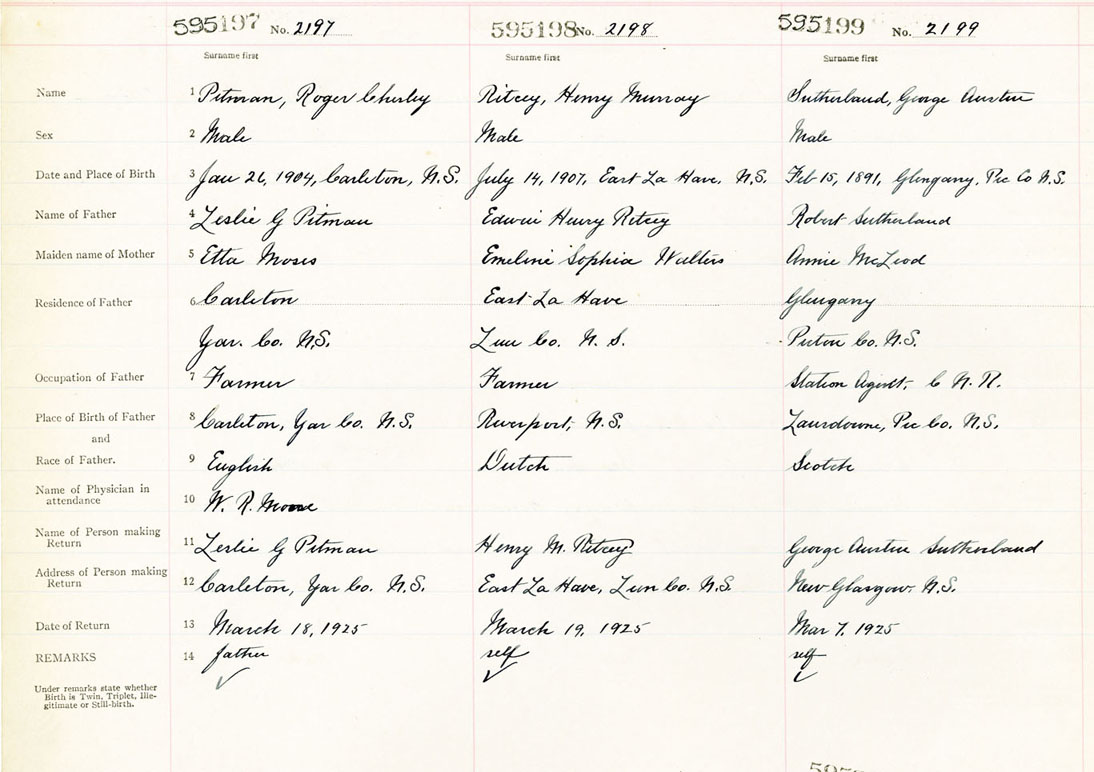 595197 No. 2197 595198 No. 2198 595199 No. 2199
Surname first Surname first Surname first
Name 1 Pitman, Roger Ritcey, Henry Murray Sutherland, George Austin
Sex 2 Male Male Male
Date and Place of Birth 3 Jan 26, 1904, Carleton, N.S. July 14, 1907, East La Have, N.S. Feb 15, 1891, Glengarry, Pic Co N.S.
Name of Father 4 Leslie G Pitman Edwin Henry Ritcey Robert Sutherland
Maiden name of Mother 5 Etta Moses Emeline Sophia Walters Annie McLeod
Residence of Father 6 Carleton East La Have Glengarry
Yar. Co. N.S. Lun Co. N. S. Pictou Co. N.S.
Occupation of Father 7 Farmer Farmer Station Agent, C N. R.
Place of Birth of Father 8 Carleton, Yar Co. N.S. Riverport, N.S. Lansdowne, Pic Co. N.S.
and
Race of Father. 9 English Dutch Scotch
Name of Physician in
attendance 10 W. R. Moore
Name of Person making
Return 11 Leslie G Pitman Henry M. Ritcey George Austin Sutherland
Address of Person making
Return 12 Carleton, Yar Co. N.S. East La Have, Lun Co. N.S. New Glasgow. N.S.
Date of Return 13 March 18, 1925 March 19, 1925 Mar 7, 1925
REMARKS 14 father self self
Under remarks state whether
Birth is Twin, Triplet, Ille-
gitimate or Still-birth.